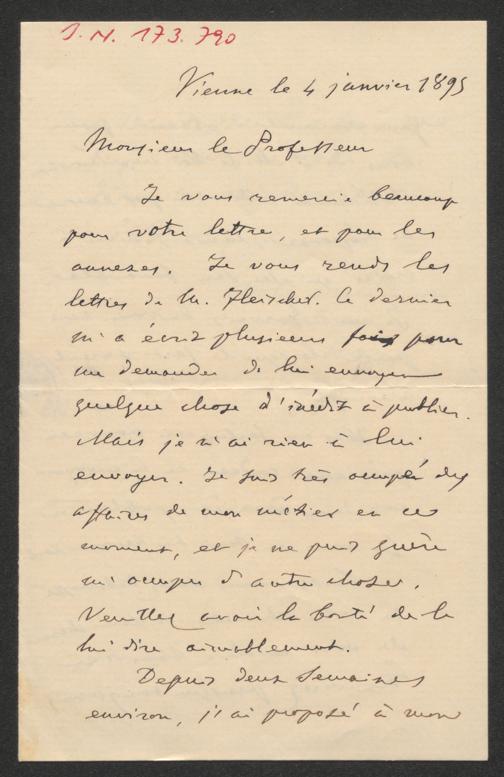 J. N. 173.790
Vienne le 4 janvier 1895
Monsieur le Professeur
Je vous remercie beaucoup
pour votre lettre, et pour les
annexes. Je vous rends les
lettres de M. Fleischer. Ce dernier
m'a écrit plusieurs fois pour
me demander de lui envoyer
quelque chose d'inédit à publier.
Mais je n'ai rien à lui
envoyer. Je suis très occupé des
affaires de mon métier en ce
moment, et je ne puis guère
m'occuper d'autre chose.
Veuillez avoir la bonté de le
lui dire aimablement.
Depuis deux semaines
environ, j'ai proposé à mon